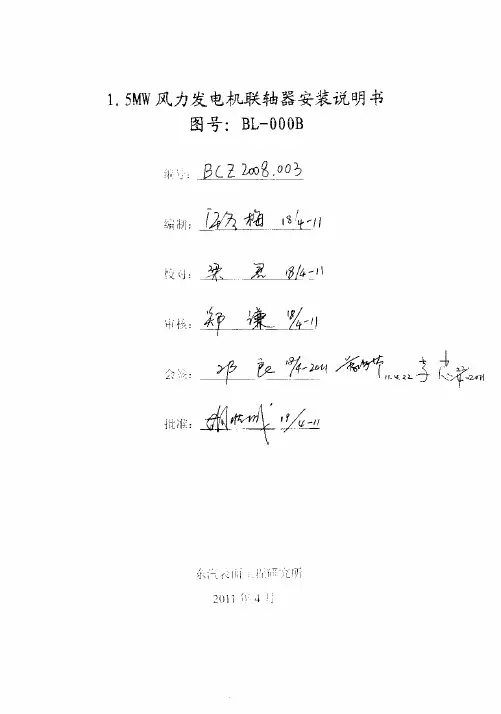 1.5MW风力发电机联轴器安装说明书
图号：BL-000B
编号：BCZ2008.003
编制：梅 18/4-11
校对：梁 君 18/4-11
审核：郑 谦 18/4-11
会签：邓 良 18/4-2011 11.4.22 李 -2011
批准： 19/4-11
东汽表面工程研究所
2011年4月